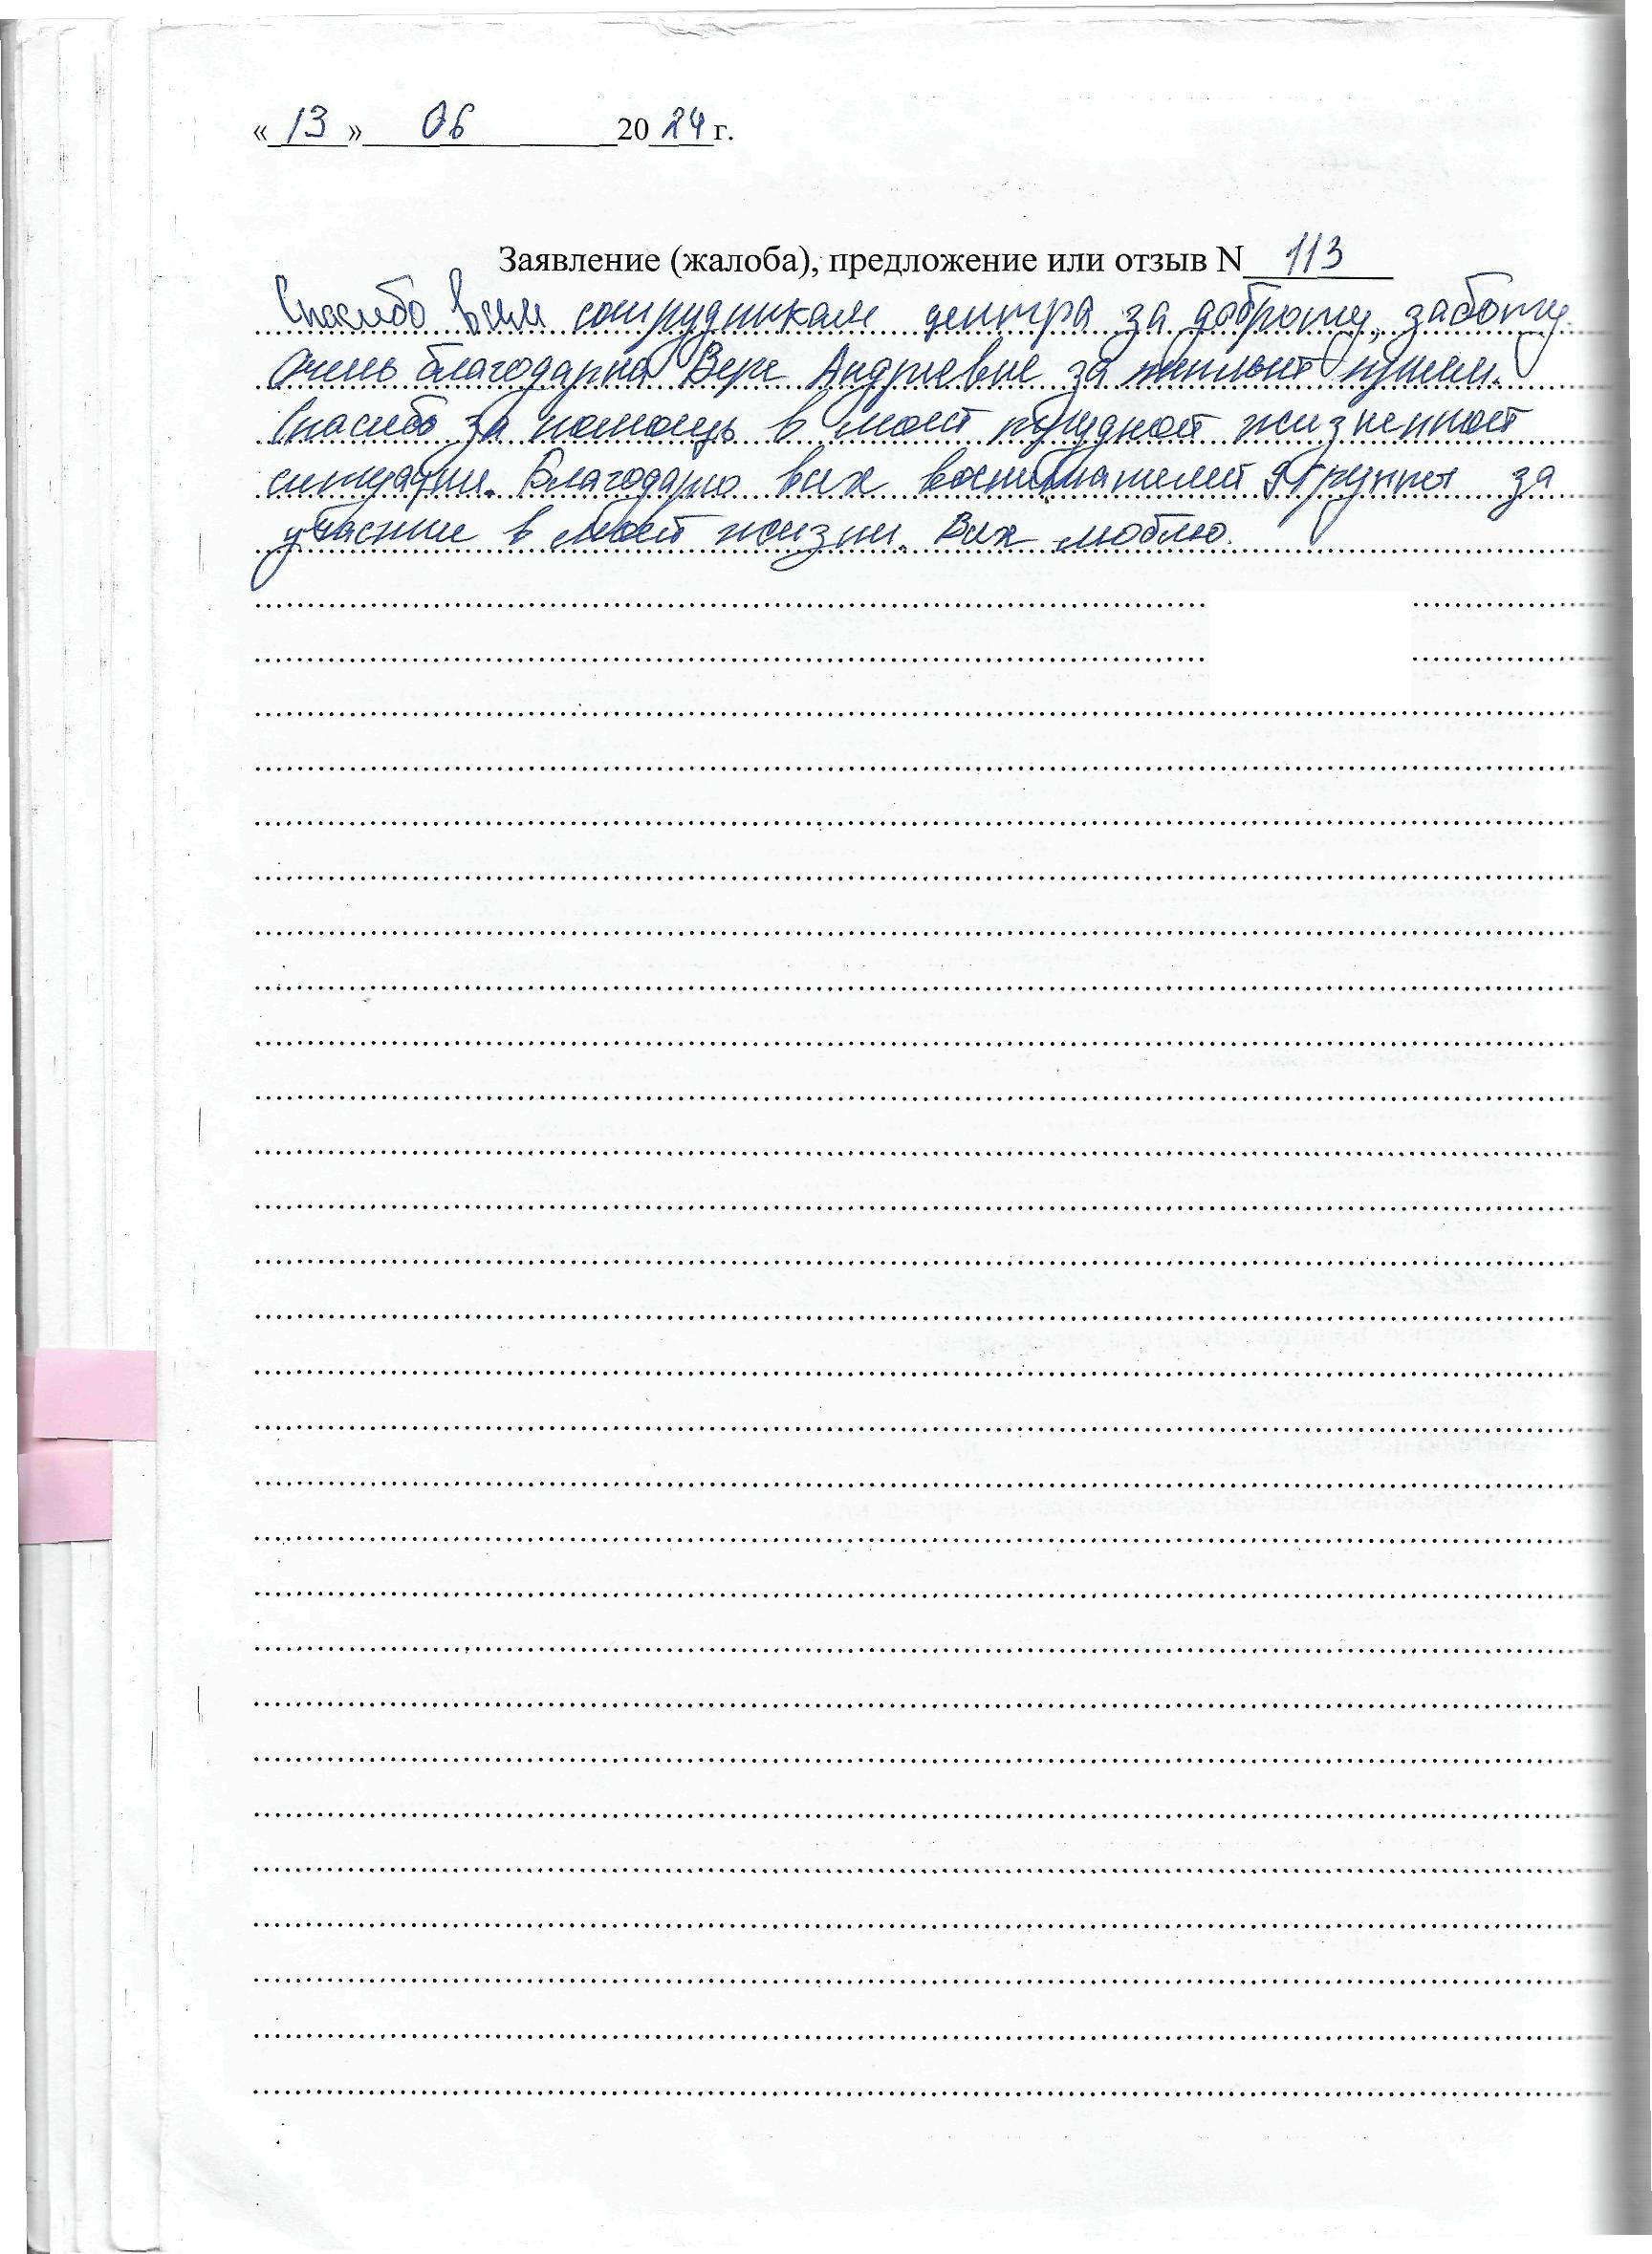 «13» 06 2024 г.
Заявление (жалоба), предложение или отзыв N 113
Спасибо всем сотрудникам центра за доброту, заботу.
Очень благодарна Вере Андреевне за теплый прием.
Спасибо за помощь в моей трудной жизненной
ситуации. Благодарю всех воспитателей группы за
участие в моей жизни. Всех люблю.